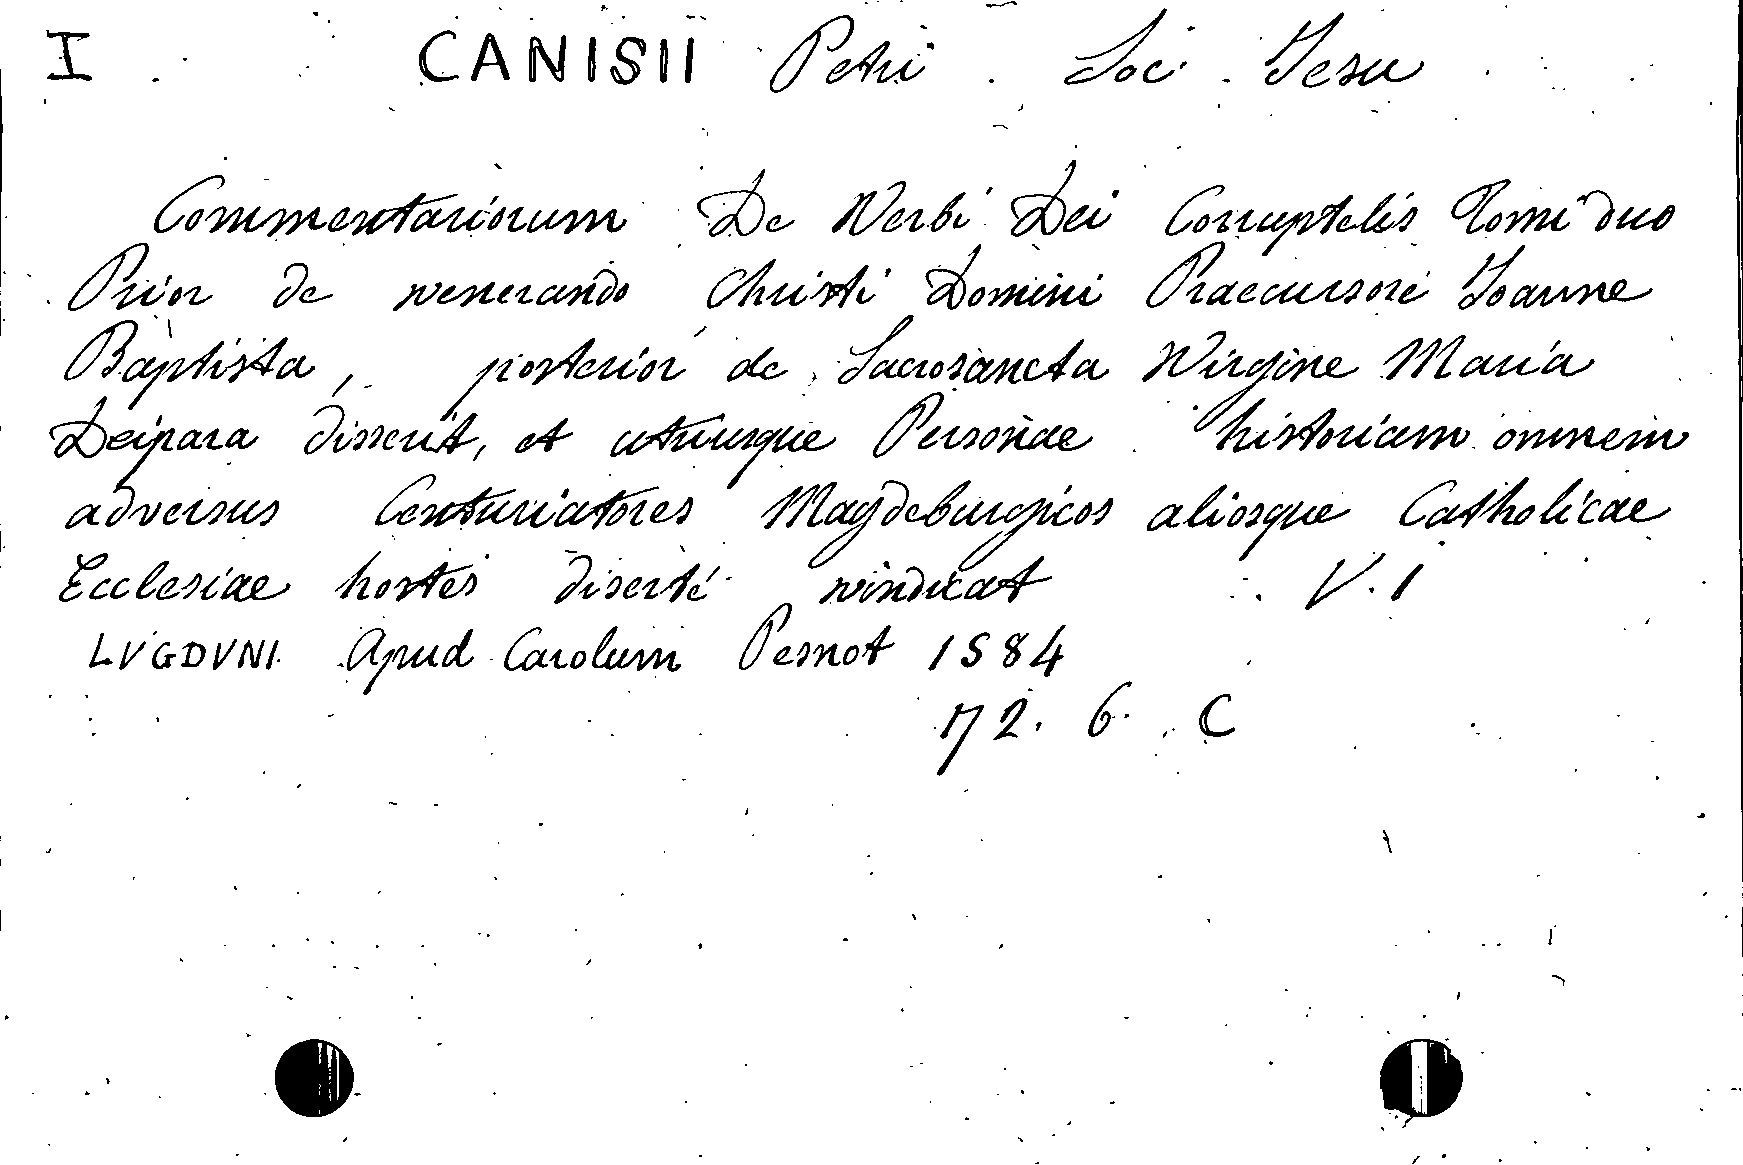 I CANISII Petri Soc. Iesu
Commentariorum De Verbi Dei Corruptelis Tomi duo
Prior de venerando Christi Domini Praecursore Ioanne
Baptista, posterior de Sacrosancta Virgine Maria
Deipara disserit, et utriusque Personae historiam omnem
adversus Centuriatores Magdeburgicos aliosque Catholicae
Ecclesiae hostes diserté vindicat V.1
LVGDVNI Apud Carolum Pesnot 1584
72. 6. C